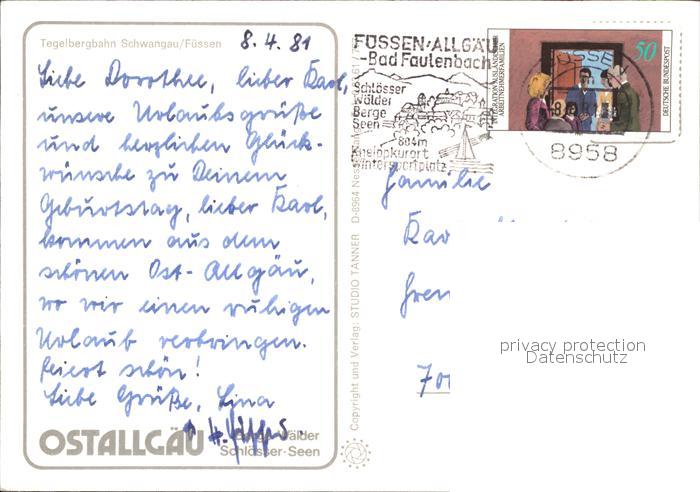 Tegelbergbahn Schwangau/Füssen
8.4.81
Liebe Dorothee, lieber Karl,
unsere Urlaubsgrüße
und herzlichen Glück-
wünsche zu Deinem
Geburtstag, lieber Karl,
kommen aus dem
schönen Ost-Allgäu,
wo wir einen ruhigen
Urlaub verbringen.
Feiert schön!
Liebe Grüße, Lina
OSTALLGÄU
Berge-Wälder
Schlösser-Seen
Copyright und Verlag: STUDIO TANNER D-8964
FÜSSEN/ALLGÄU
-Bad Faulenbach
Schlösser
Wälder
Berge
Seen
804m
Kneippkurort
Wintersportplatz
INTEGRATION AUSLÄNDISCHER
ARBEITNEHMERFAMILIEN
50
DEUTSCHE BUNDESPOST
8958
Familie
privacy protection
Datenschutz